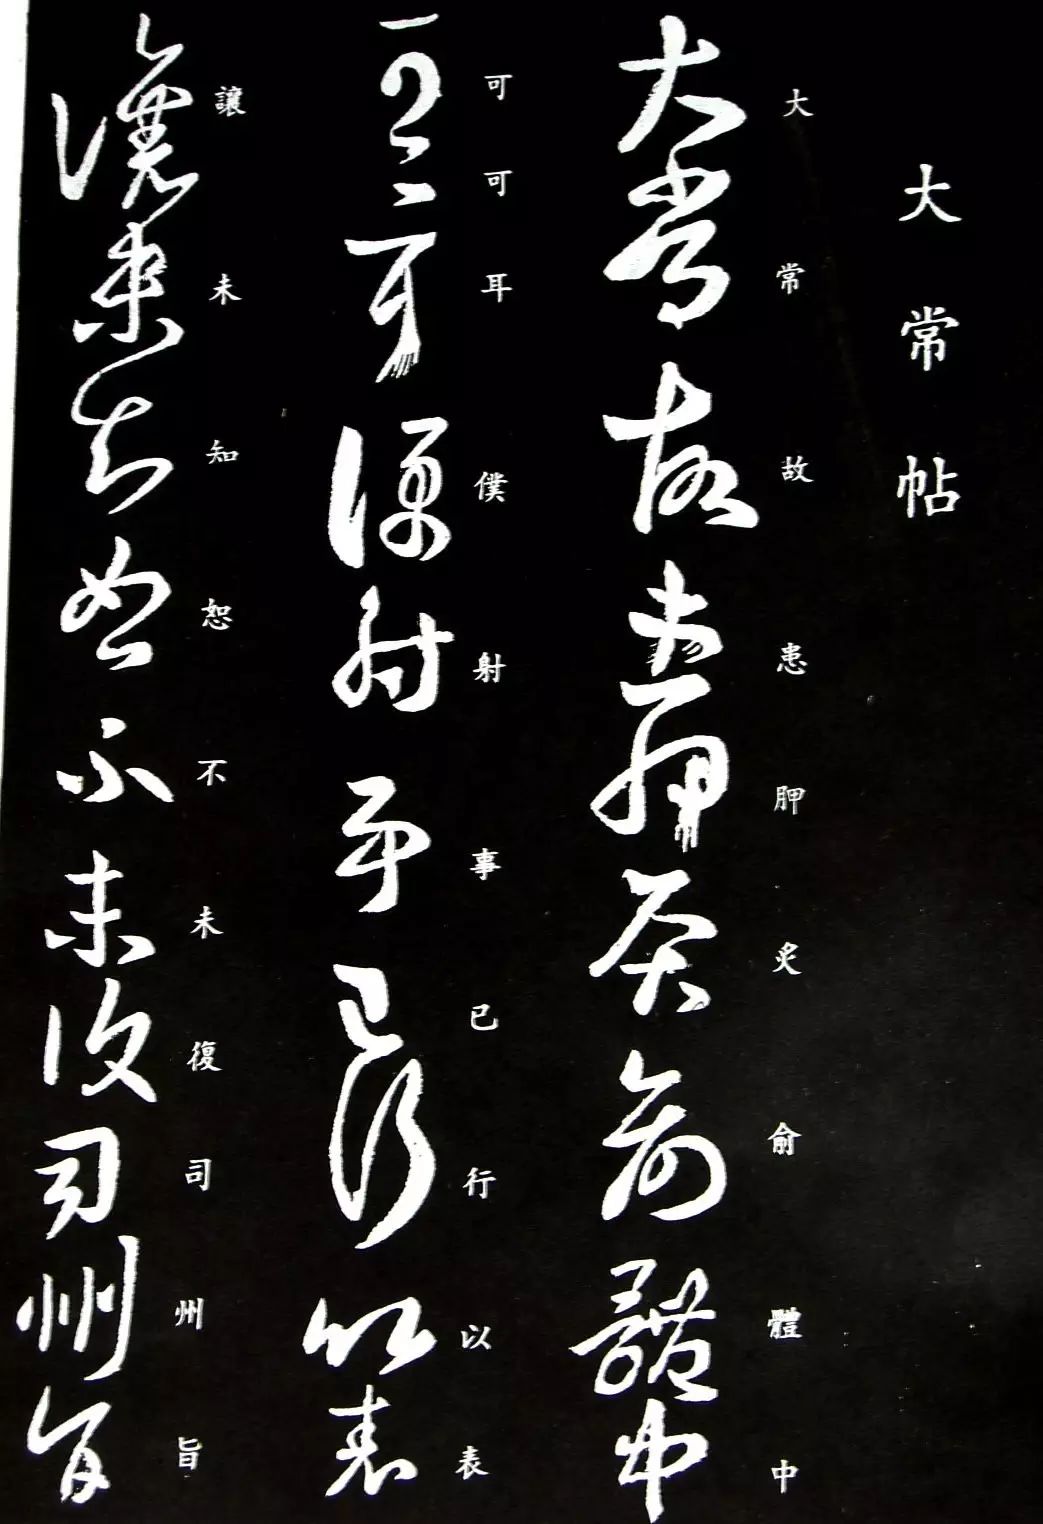 大常帖
大常故患胛炙俞體中
可可耳僕射事已行以表
讓未知恕不未復司州旨